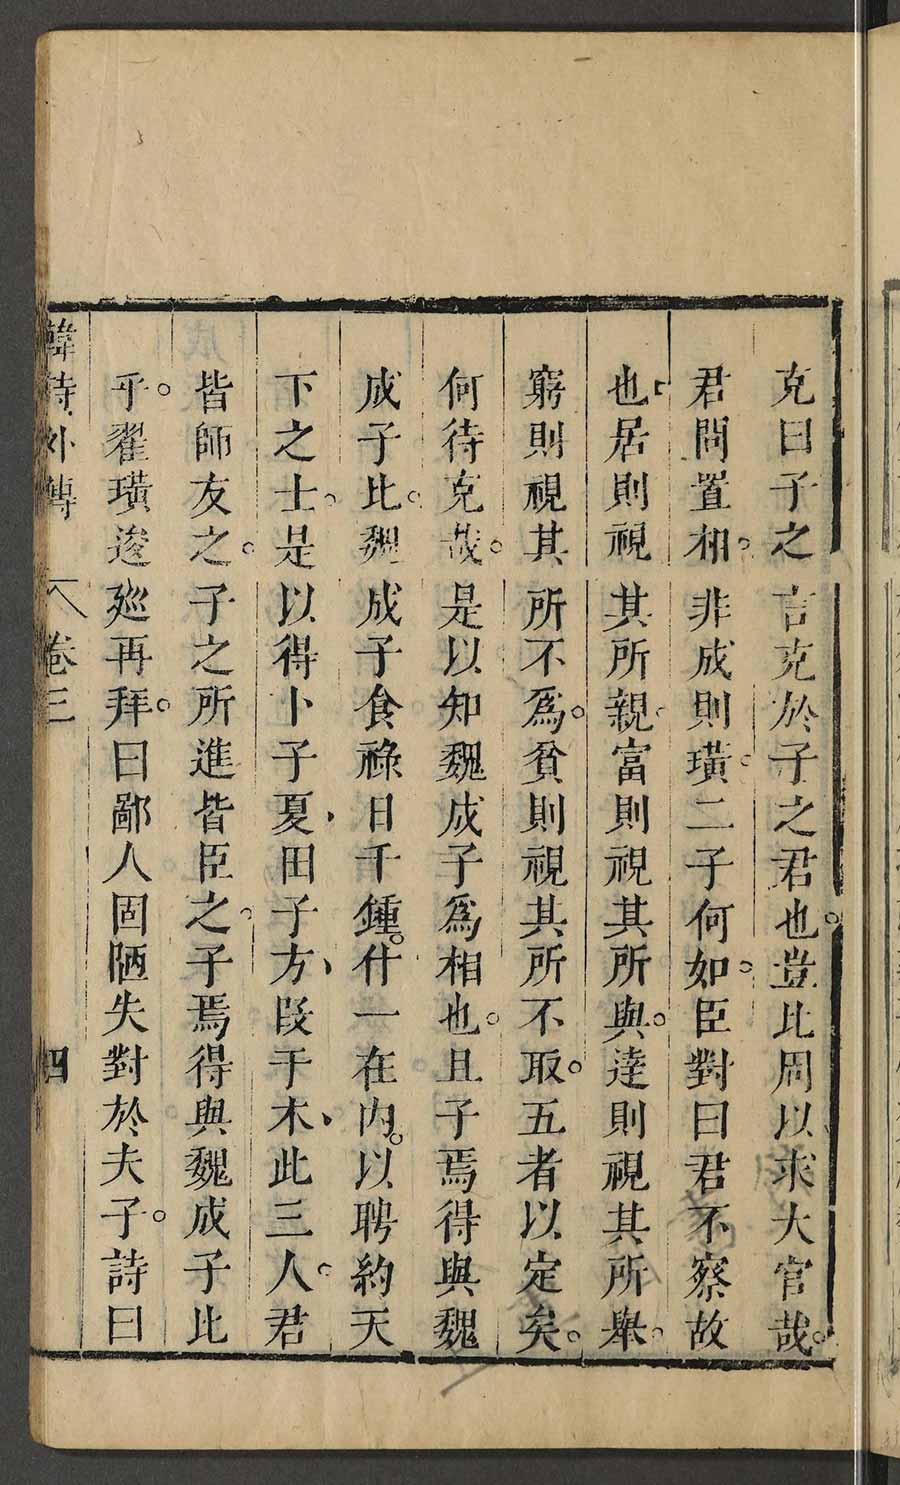 克曰子之言克於子之君也。豈比周以求大官哉。
君問置相。非成則璜。二子何如。臣對曰君不察故
也居則視其所親。富則視其所與。達則視其所舉。
窮則視其所不爲。貧則視其所不取。五者以定矣。
何待克哉。是以知魏成子爲相也。且子焉得與魏
成子比。魏成子食祿日千鍾。什一在内。以聘約天
下之士。是以得卜子夏、田子方、段干木、此三人。君
皆師友之。子之所進皆臣之。子焉得與魏成子比
乎。翟璜逡廵再拜。曰鄙人固陋失對於夫子。詩曰
韓詩外傳 卷三 四